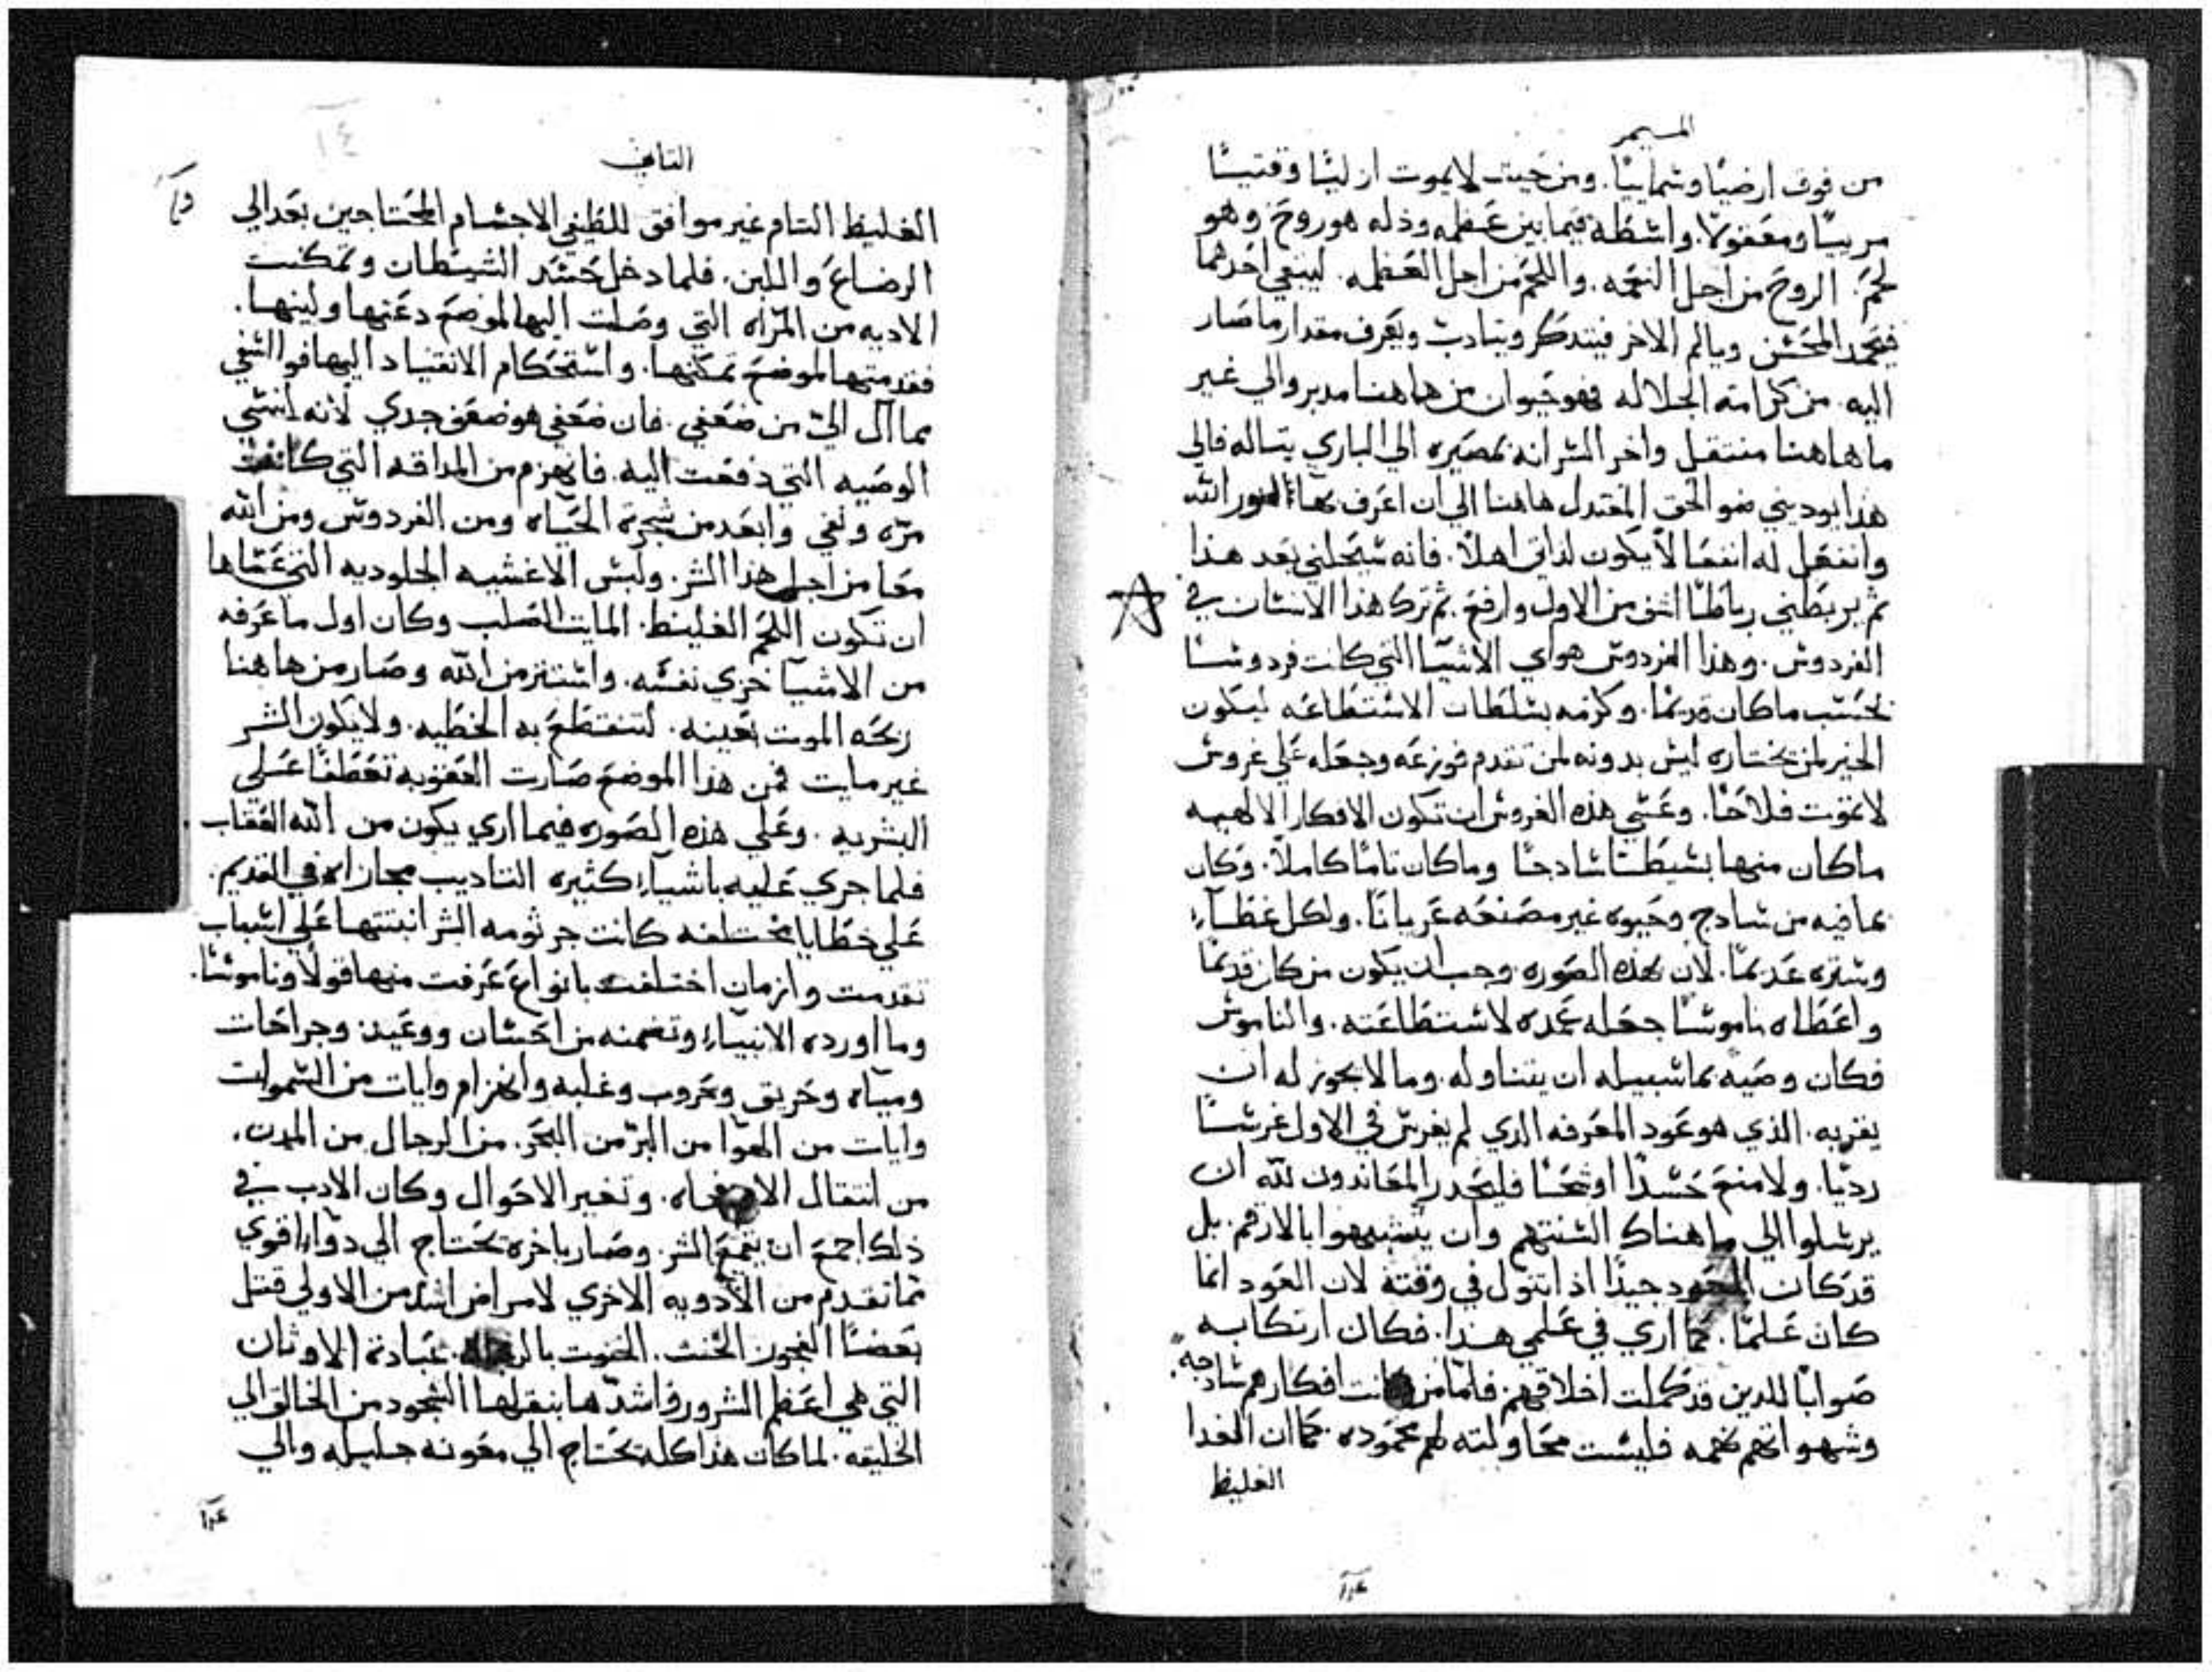 الميمر
من فوق ارضيًا وسماييًا. ومن حيث لا يموت ازليًا وقتيسًا
مرييًا ومعقولًا. واسطة فيما بين عظمه وذله هو روح وهو
لحم. الروح من اجل النعمه. واللحم من اجل العظمه. ليبقي احدهما
فيحمد المحسن ويالم الاخر فيتذكر ويتادب ويعرف مقدار ما صار
اليه من كرامة الجلاله فهو حيوان من هاهنا مدبر والي غير
ما هاهنا منتقل واخر السر انه بمصيره الي الباري يتاله فالي
هذا يوديني ضو الحق المعتدل هاهنا الي ان اعرف بهاء نور الله
وانفعل له انفعالًا يكون لذاتي اهلًا. فانه سيحلني بعد هذا
ثم يربطني رباطًا اتقن من الاول وارفع. ثم ترك هذا الانسان في
الفردوس. وهذا الفردوس هو اي الاشيا التي كانت فردوسًا
بحسب ما كان قديمًا. وكرمه بسلطان الاستطاعه ليكون
الخير لمن يختاره ليس بدونه لمن تقدم فوزعه وجعله علي غروس
لا تموت فلاحًا. وعسي هذه الغروس ان تكون الافكار الالهيه
ماكان منها بسيطًا سادجًا وماكان تامًا كاملًا. وكان
بما فيه من سادج وحيوه غير مصنعه عريانًا. ولكل غطاء
وستره عديمًا. لان بهذه الصوره وجب ان يكون من كان قديمًا
واعطاه ناموسًا جعله عمده لاستطاعته. والناموس
فكان وصية بما سبيله ان يتناوله. وما لا يجوز له ان
يقربه. الذي هو عود المعرفه الذي لم يغرس في الاول غرسًا
رديًا. ولا منع حسدًا او شحًا فليحذر المعاندون لله ان
يرسلوا الي ما هناك السنتهم وان يتشبهوا بالارقم. بل
قد كان العود جيدًا اذا تنوول في وقته لان العود انما
كان علمًا. كما اري في علمي هذا. فكان ارتكابه
صوابًا للذين قد كملت اخلاقهم. فاما من كانت افكارهم سادجه
وشهواتهم نهمه فليست محاولته لهم محموده. كما ان الغدا
الغليظ
التاني
الغليظ التام غير موافق للطيفي الاجسام المحتاجين بعد الي
الرضاع واللبن. فلما دخل حسد الشيطان وتمكنت
الاديه من المراه التي وصلت اليها لموضع دعتها ولينها.
فقدمتها لموضع تمكنها. واستحكام الانقياد اليها فوا اسفي
بما آل اليّ من ضعفي. فان ضعفي هو ضعف جدي لانه انسي
الوصيه التي دفعت اليه. فانهزم من المداقه التي كانت
مرّه ونفي وابعد من شجرة الحياه ومن الفردوس ومن الله
معًا من اجل هذا الشر. ولبس الاغشيه الجلوديه التي عساها
ان تكون اللحم الغليظ. المايت الصلب وكان اول ما عرفه
من الاشيا خزي نفسه. واستتر من الله وصار من هاهنا
ربحه الموت بعينه. لتنقطع به الخطيه. ولا يكون الشر
غير مايت فمن هذا الموضع صارت العقوبه تعطفًا علي
البشريه. وعلي هذه الصوره فيما اري يكون من الله العقاب
فلما جري عليه باشياء كثيره التاديب مجازاه في القديم.
علي خطايا مختلفه كانت جرثومه الشر انبتتها علي اسباب
تقدمت وازمان اختلفت بانواع عرفت منها قولًا وناموسًا.
وما اورده الانبياء وتضمنه من احسان ووعيد وجراحات
ومياه وحريق وحروب وغلبه وانهزام وايات من السموات
وايات من الهوا من البرّ من البحر. من الرجال من المدن.
من انتقال وتغير الاحوال وكان الادب في
ذلك اجمع ان يقمع الشر. وصار باخره يحتاج الي دواء اقوي
مما تقدم من الادويه الاخري لامراض اشد من الاولي قتل
بعضًا الفجور الخنث. عبادة الاوثان
التي هي اعظم الشرور واشدها بنقلها السجود من الخالق الي
الخليقه. لما كان هذا كله يحتاج الي معونه جليله والي